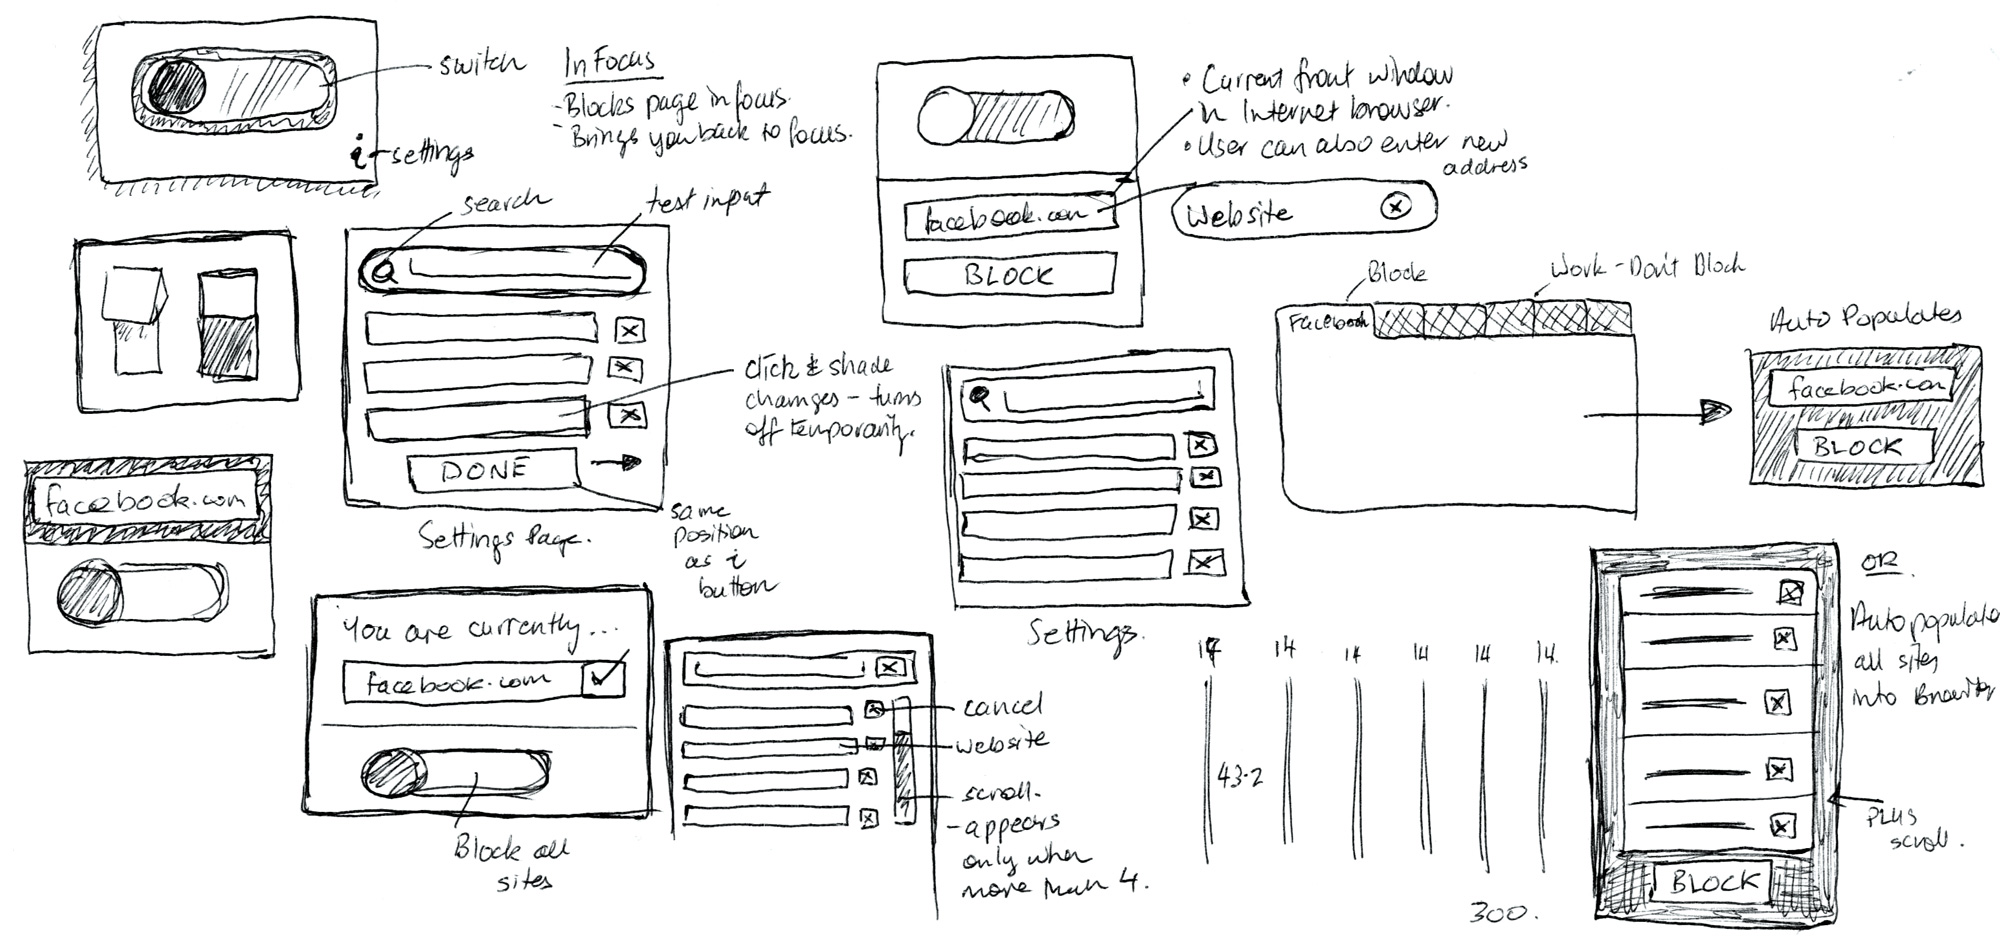 switch
In Focus
- Blocks page in focus.
- Brings you back to focus.
i
settings
search
text input
click & shade
changes - turns
off temporarily.
DONE
Settings Page.
same
position
as i
button
facebook.com
You are currently...
facebook.com
Block all
sites
cancel
website
scroll.
- appears
only when
more than 4.
• Current front window
in Internet browser.
• User can also enter new
address
facebook.com
BLOCK
Website
Block
Work - Don't Block
Facebook
Auto Populates
facebook.com
BLOCK
Settings.
14
14
14
14
14
14.
43.2
300.
OR.
Auto populate
all sites
into
PLUS
scroll.
BLOCK